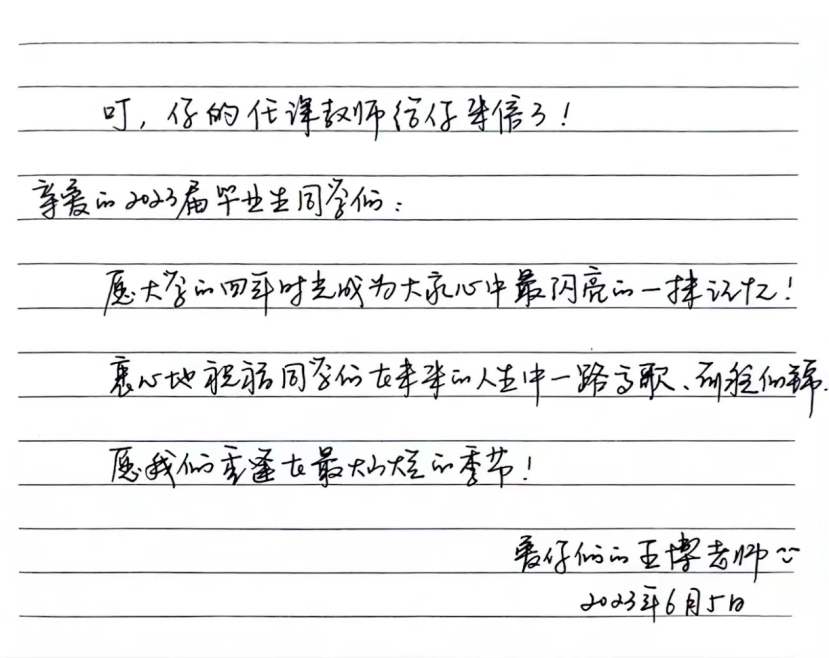 叮，你的任课教师给你来信了！
亲爱的2023届毕业生同学们：
愿大学的四年时光成为大家心中最闪亮的一抹记忆！
衷心地祝福同学们在未来的人生中一路高歌、前程似锦.
愿我们重逢在最灿烂的季节！
爱你们的王博老师
2023年6月5日